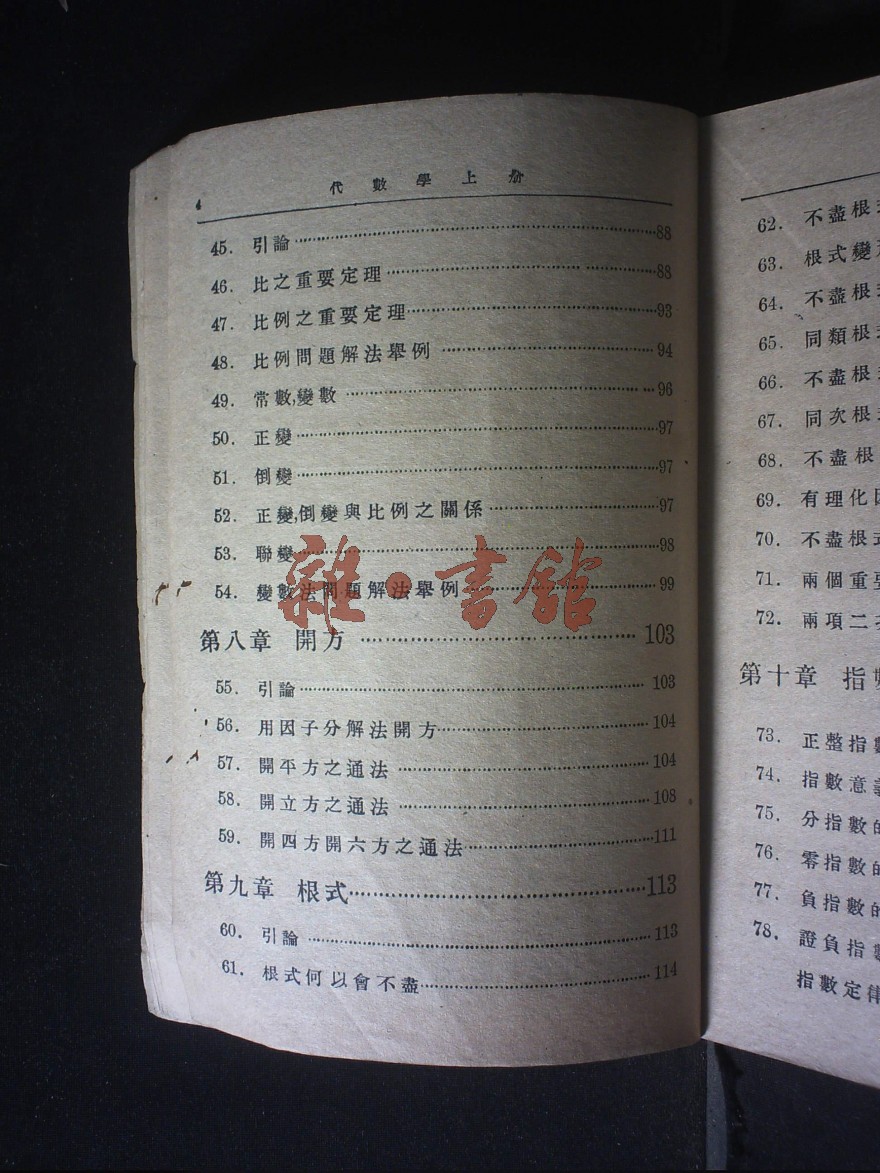 4
代數學上册
45. 引論 88
46. 比之重要定理 88
47. 比例之重要定理 93
48. 比例問題解法舉例 94
49. 常數,變數 96
50. 正變 97
51. 倒變 97
52. 正變,倒變與比例之關係 97
53. 聯變 98
54. 變數法問題解法舉例 99
第八章 開方 103
55. 引論 103
56. 用因子分解法開方 104
57. 開平方之通法 104
58. 開立方之通法 108
59. 開四方開六方之通法 111
第九章 根式 113
60. 引論 113
61. 根式何以會不盡 114
雜·書館
62. 不盡根
63. 根式變
64. 不盡根
65. 同類根
66. 不盡根
67. 同次根
68. 不盡根
69. 有理化
70. 不盡根
71. 兩個重要
72. 兩項二
第十章 指
73. 正整指數
74. 指數意義
75. 分指數的
76. 零指數的
77. 負指數的
78. 證負指數
指數定律